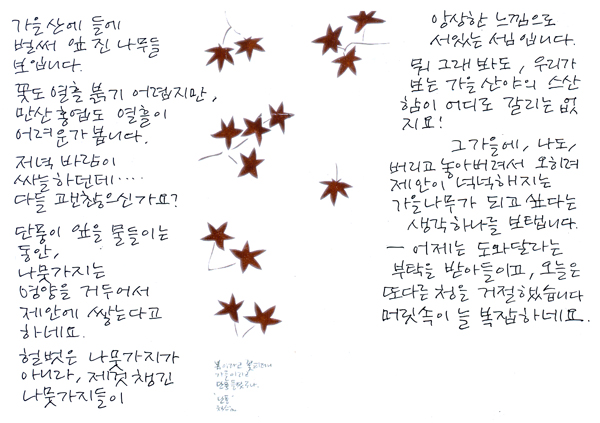 가을산에 들에
벌써 잎 진 나무들
보입니다.
꽃도 열흘 붉기 어렵지만,
만산홍엽도 열흘이
어려운가 봅니다.
저녁 바람이
싸늘하던데····
다들 괜찮으신가요?
단풍이 잎을 물들이는
동안,
나뭇가지는
영양을 거두어서
제안에 쌓는다고
하네요.
헐벗은 나뭇가지가
아니라, 제것 챙긴
나뭇가지들이
앙상한 느낌으로
서있는 셈입니다.
뭐 그래 봐도, 우리가
보는 가을 산야의 스산
함이 어디로 갈리는 없
지요!
그가을에, 나도,
버리고 놓아버려서 오히려
제안이 넉넉해지는
가을나무가 되고 싶다는
생각하나를 보탭니다.
— 어제는 도와달라는
부탁을 받아들이고, 오늘은
또다른 청을 거절했습니다
머릿속이 늘 복잡하네요.